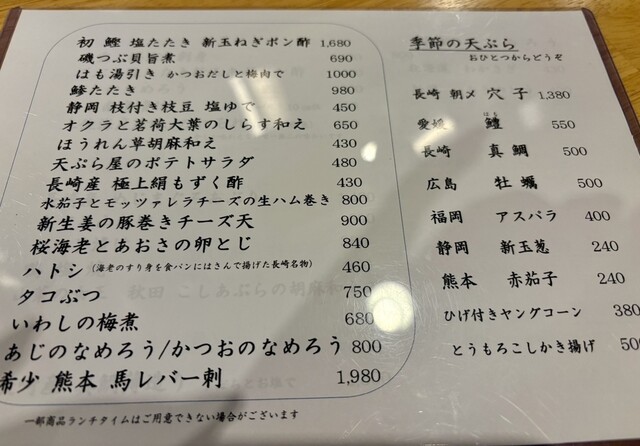 初鰹 塩たたき 新玉ねぎポン酢 1,680
磯つぶ貝旨煮 690
はも湯引き かつおだしと梅肉で 1000
鯵たたき 980
静岡 枝付き枝豆 塩ゆで 450
オクラと茗荷大葉のしらす和え 650
ほうれん草胡麻和え 430
天ぷら屋のポテトサラダ 480
長崎産 極上絹もずく酢 430
水茄子とモッツァレラチーズの生ハム巻き 800
新生姜の豚巻きチーズ天 900
桜海老とあおさの卵とじ 840
ハトシ (海老のすり身を食パンにはさんで揚げた長崎名物) 460
タコぶつ 750
いわしの梅煮 680
あじのなめろう/かつおのなめろう 800
希少 熊本 馬レバー刺 1,980
一部商品ランチタイムはご用意できない場合がございます
季節の天ぷら
おひとつからどうぞ
長崎 朝〆 穴子 1,380
愛媛 鱧 550
はも
長崎 真鯛 500
広島 牡蠣 500
福岡 アスパラ 400
静岡 新玉葱 240
熊本 赤茄子 240
ひげ付きヤングコーン 380
とうもろこしかき揚げ 500